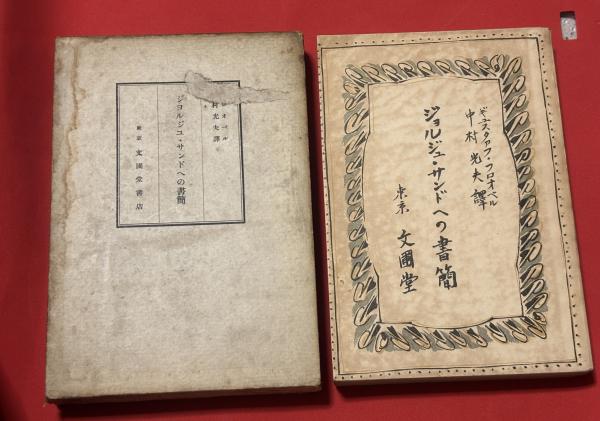 ロオベル
村光夫譯
ジヨルジユ・サンドへの書簡
東京 文圃堂書店
ギュスタアフ・フロオベル
中村光夫譯
ジョルジュ・サンドへの書簡
東京 文圃堂